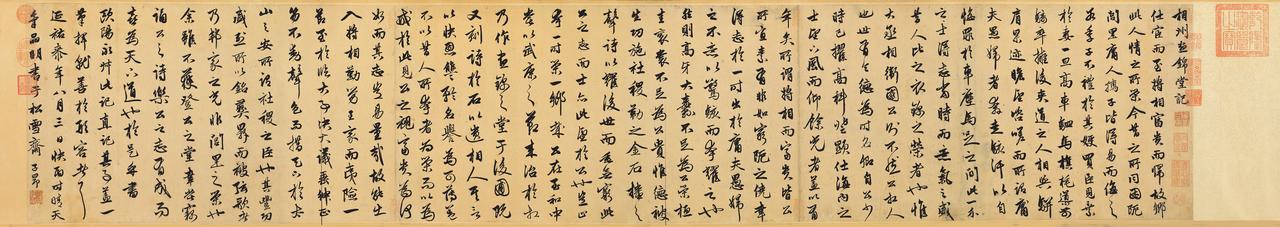 相州晝錦堂記
仕宦而至將相富貴而歸故鄉
此人情之所榮今昔之所同困阨
閭里庸人孺子皆得易而侮之
若季子不禮於其嫂買臣見棄
於妻一旦高車駟馬旗旄導前
騎卒擁後夾道之人相與駢
肩累迹瞻望咨嗟而所謂庸
夫愚婦者奔走駭汗以自
悔罪於車塵馬足之間此一介
之士得志當時而意氣之盛
昔人比之衣錦之榮者也惟
大丞相衛國公則不然公相人
也世有令德為時名卿自公少
時已擢高科登顯仕海內之
士聞下風而仰餘光者蓋亦有
年矣所謂將相而富貴皆公
所宜素有非如窮阨之僥幸
得志於一時出於庸夫愚婦
之不意以驚駭而夸耀之也
然則高牙大纛不足為公榮桓
圭袞裳不足為公貴惟德被
生民功施社稷勒之金石播之
聲詩以耀後世而垂無窮此
公之志而士亦以此望於公也豈止
夸一時榮一鄉哉公在至和中
嘗以武康之節來治於相
乃作晝錦之堂于後圃既
又刻詩於石以遺相人其言
以快恩讎矜名譽為可薄蓋
不以昔人所夸者為榮而以為
戒於此見公之視富貴為何
如而其志豈易量哉故能出
入將相勤勞王家而夷險一
節至於臨大事決大議垂紳正
笏不動聲色而措天下於泰
山之安所謂社稷之臣也其豐功
盛烈所以銘彝鼎而被弦歌者
乃邦家之光非閭里之榮也
余雖不獲登公之堂幸嘗竊
誦公之詩樂公之志有成而
喜為天下道也於是乎書
歐陽永叔此記真記其
善於形容
延祐 年八月三日快雨時晴天
李品明書于松雪齋 子昂